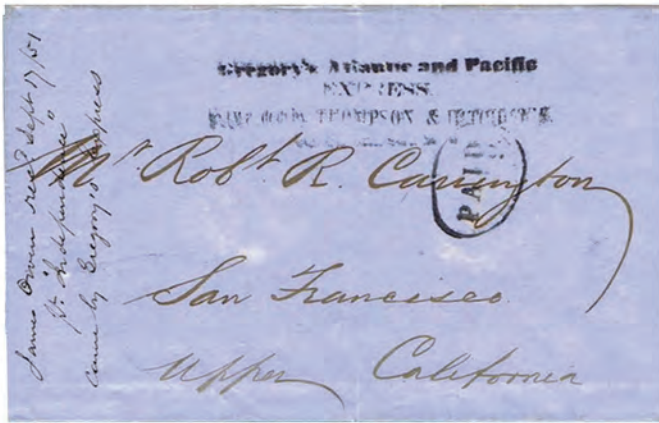 Gregory's Atlantic and Pacific
EXPRESS
THOMPSON & HITCHCOCK
PAID
Mr Robt R. Carrington
San Francisco
Upper California
James Owen recd Sept 17/51
Pr "Independence"
came by Gregory's Express